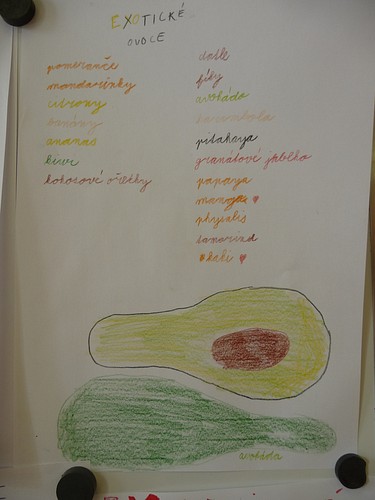 EXOTICKÉ
OVOCE
pomeranče
mandarinky
citrony
banány
ananas
kiwi
kokosové ořechy
datle
fíky
avokádo
karambola
pitahaya
granátové jablko
papaya
mango
physalis
tamarind
kaki
avokádo